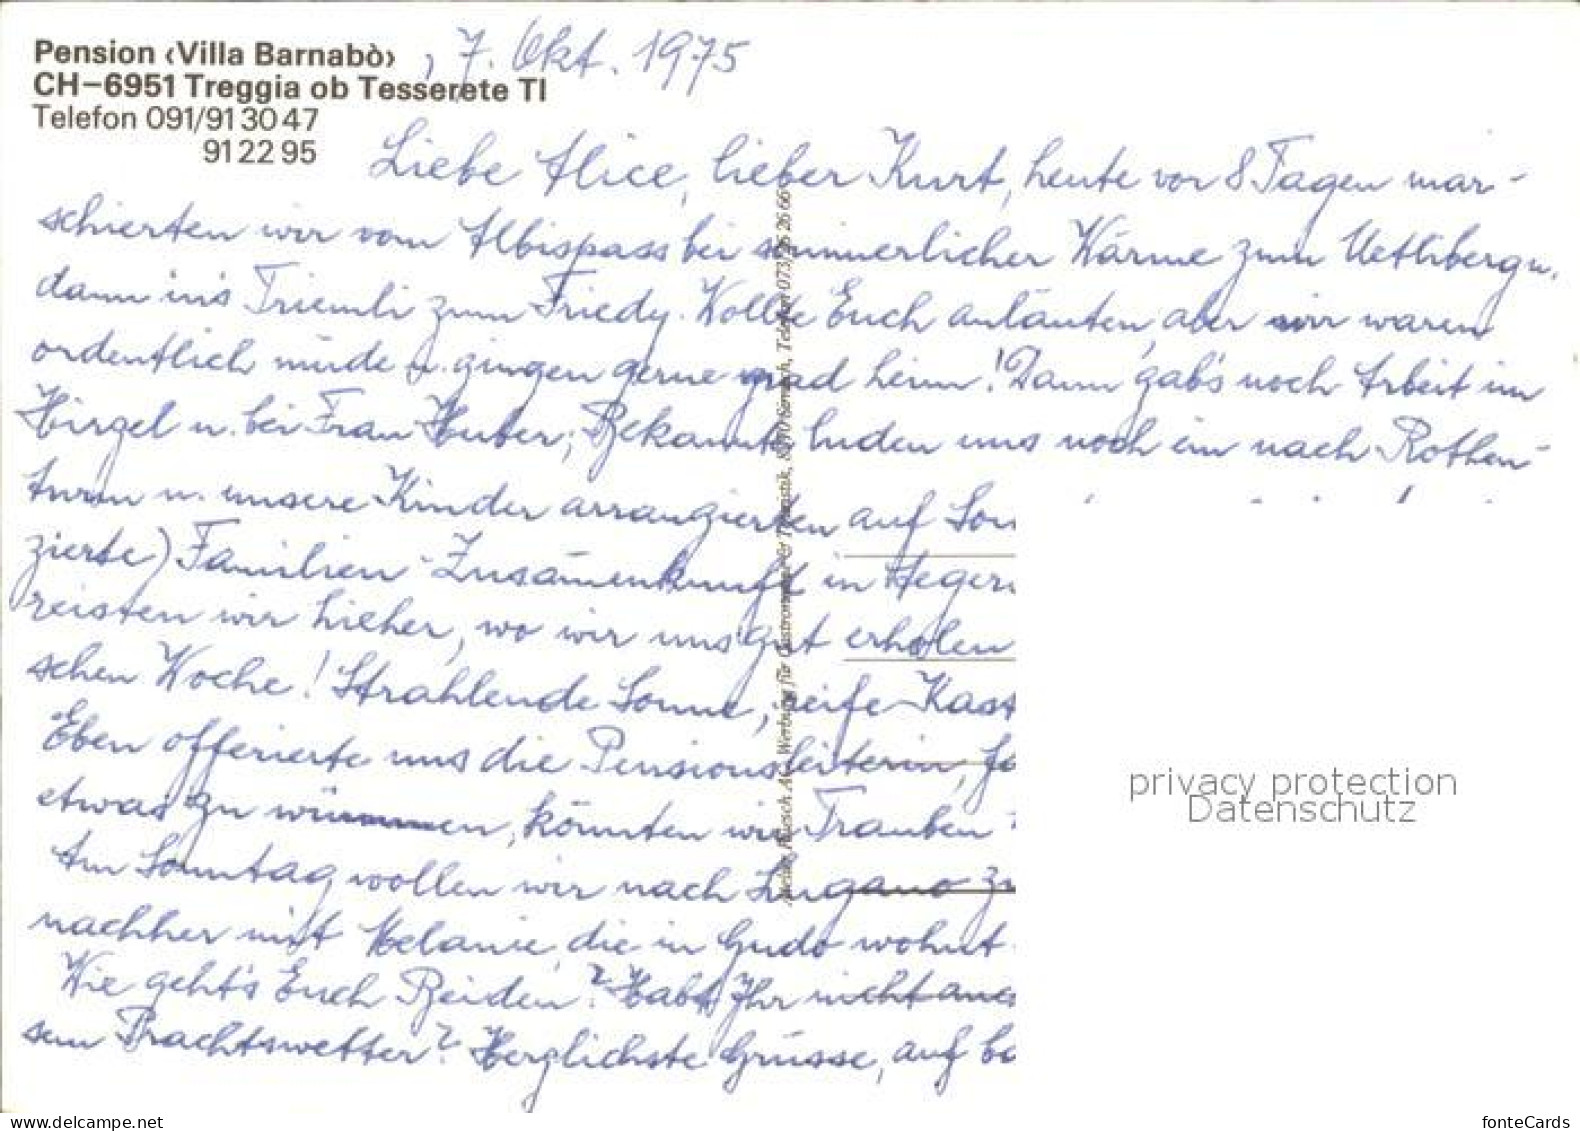 Pension ‹Villa Barnabò› , 7. Okt. 1975
CH–6951 Treggia ob Tesserete TI
Telefon 091/91 30 47
91 22 95
Liebe Alice, lieber Kurt, heute vor 8 Tagen mar-
schierten wir vom Albispass bei sommerlicher Wärme zum Uetliberg u.
dann in's Triemli zum Friedy. Wollte Euch anläuten, aber wir waren
ordentlich müde u. gingen gerne grad heim! Dann gab's noch Arbeit im
Hirzel u. bei Frau Huber; Bekannte luden uns noch ein nach Rothen-
turm u. unsere Kinder arrangierten auf Son
zierte) Familien-Zusammenkunft in Aegeri
reisten wir hieher, wo wir uns gut erholen
schen Woche! Strahlende Sonne, reife Kast
Eben offerierte uns die Pensionsleiterin,
etwas zu wümmen, könnten wir Trauben
Am Sonntag wollen wir nach Lugano zu
nachher mit Melanie, die in Gudo wohnt
Wie geht's Euch Beiden? Habt Ihr nicht auch
sem Prachtswetter? Herzlichste Grüsse, auf ba
Werbung für Gastronomie & Touristik, Telefon 073/
privacy protection
Datenschutz
fonteCards